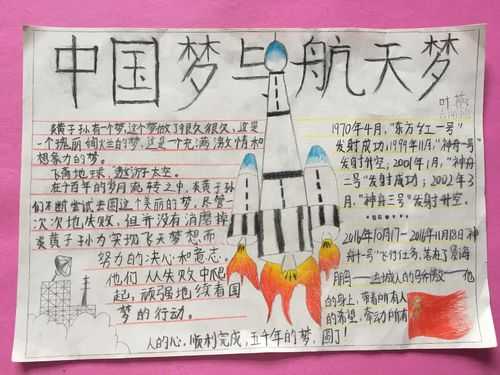 中国梦与航天梦
炎黄子孙有个梦,这个梦做了很久很久,这是
一个瑰丽绚烂的梦,这是一个充满激情和
想象力的梦。
飞离地球,遨游太空。
在千百年的岁月流转之中,炎黄子孙
们不断尝试去圆这个美丽的梦,尽管一
次次地失败,但并没有消磨掉
炎黄子孙为实现飞天梦想而
努力的决心和意志。
他们从失败中爬
起,顽强地续着国
梦的行动。
1970年4月,“东方红一号”
发射成功,1999年11月,“神舟一号”
发射升空,2001年1月,“神舟
二号”发射成功;2002年3
月,“神舟三号”发射升空。
2016年10月17—2016年11月18日“神
舟十一号”飞行任务,
他
的身上,带着所有人
的希望,牵动所有
人的心,顺利完成,五千年的梦,圆了!